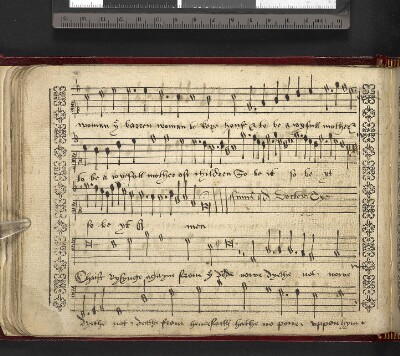 woman yͤ barren woman to kepe house & to be a ioyfull mother
to be a ioyfull mother off children So be yt so be yt
finis qd Doctor Tye
so be yt A men
Christ rysynge agayn from yͤ dede nowe dyethe not nowe
dyethe not deathe from hencefarth hathe no power uppon hym